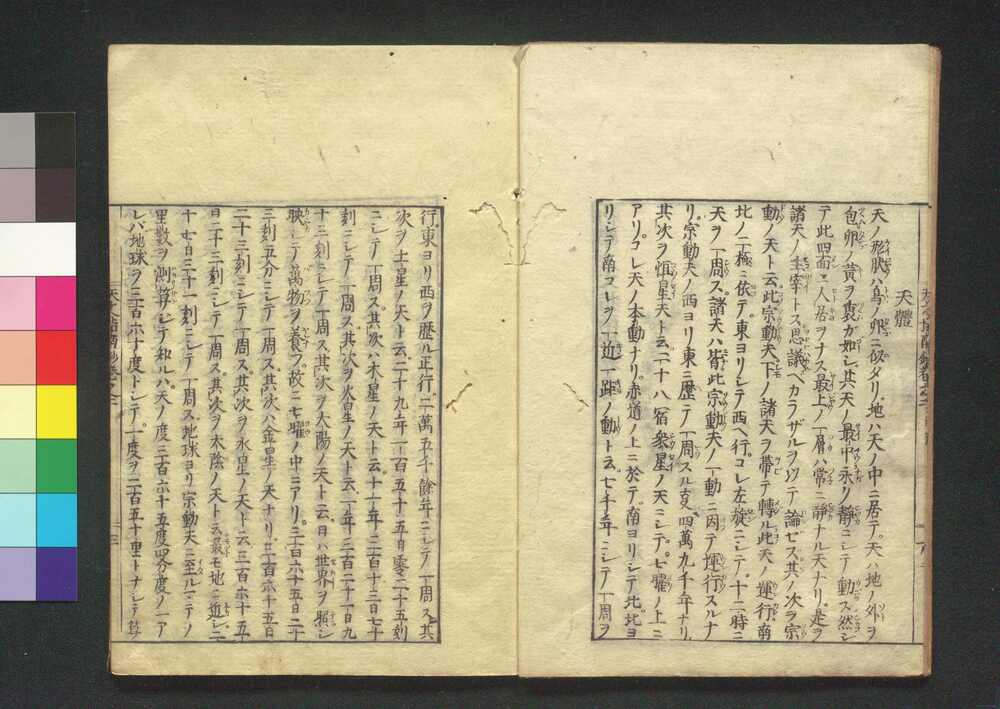 天體
天ノ形狀ハ鳥ノ卵ニ似タリ地ハ天ノ中ニ居テ天ハ地ノ外ヲ
包卵ノ黄ヲ裹ガ如シ其天ノ最中永リ靜ニシテ動ス然シ
テ此四面ニ人居ヲナス最上ノ一層ハ常ニ靜ナル天ナリ是ヲ
諸天ノ主宰トス思議ベカラザルヲ以テ論ゼス其ノ次ヲ宗
動ノ天ト云此宗動天下ノ諸天ヲ帶テ轉ル此天ノ運行南
北ノ二極ニ依テ東ヨリシテ西ヘ行コレ左旋ニシテ十二時ニ
天ヲ一周ス諸天ハ皆此宗動天ノ一動ニ因テ運行スルナ
リ宗動天ノ西ヨリ東ニ歷テ一周スル支四萬九千年ナリ
其次ヲ恒星天ト云二十八宿衆星ノ天ニシテ七曜ノ上ニ
アリコレ天ノ本動ナリ赤道ノ上ニ於テ南ヨリシテ北北ヨ
リシテ南コレヲ一近一距ノ動ト云七千年ニシテ一周ヲ
行東ヨリ西ヲ歷ル正行二萬五千餘年ニシテ一周ス其
次ヲ土星ノ天ト云二十九年一百五十五日零二十五刻
ニシテ一周ス其次ハ木星ノ天ト云十一年三百十三日七十
刻ニシテ一周ス其次ヲ火星ノ天ト云一年三百二十一日九
十三刻ニシテ一周ス其次ヲ太陽ノ天ト云日ハ世界ヲ照シ
映シテ萬物ヲ養フ故ニ七曜ノ中ニアリ三百六十五日二十
三刻五分ニシテ一周ス其次ハ金星ノ天ナリ三百六十五日
二十三刻ニシテ一周ス其次ヲ水星ノ天ト云三百六十五
日二十三刻ニシテ一周ス其次ヲ太陰ノ天ト云最モ地ニ近シ二
十七日三十一刻ニシテ一周ス地球ヨリ宗動天ニ至ルマテノ
里數ヲ測算シテ知ルハ天ノ度三百六十五度四分度ノ一ア
レバ地球ヲ三百六十度トシテ一度ヲ二百五十里トナシテ